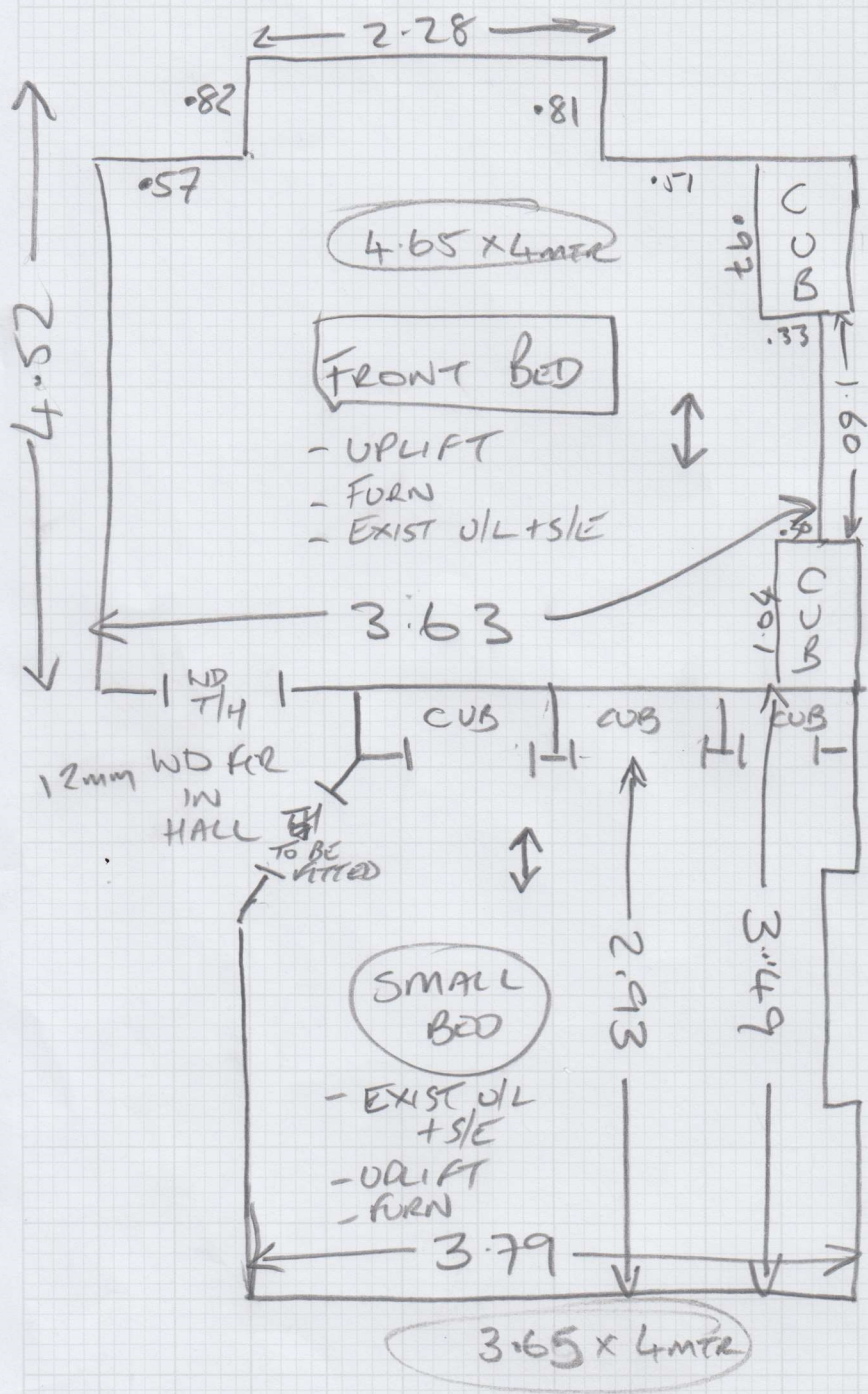 2.28
.82
.81
.57
.51
CUB
.97
4.65 x 4mtr
.33
4.52
FRONT BED
1.60
- UPLIFT
- FURN
- EXIST U/L + S/E
.30
3.63
CUB
1.04
WD
T/H
CUB
CUB
CUB
12mm WD FLR
IN
HALL
TO BE
FITTED
2.93
3.49
SMALL
BED
- EXIST U/L
+ S/E
- UPLIFT
- FURN
3.79
3.65 x 4mtr